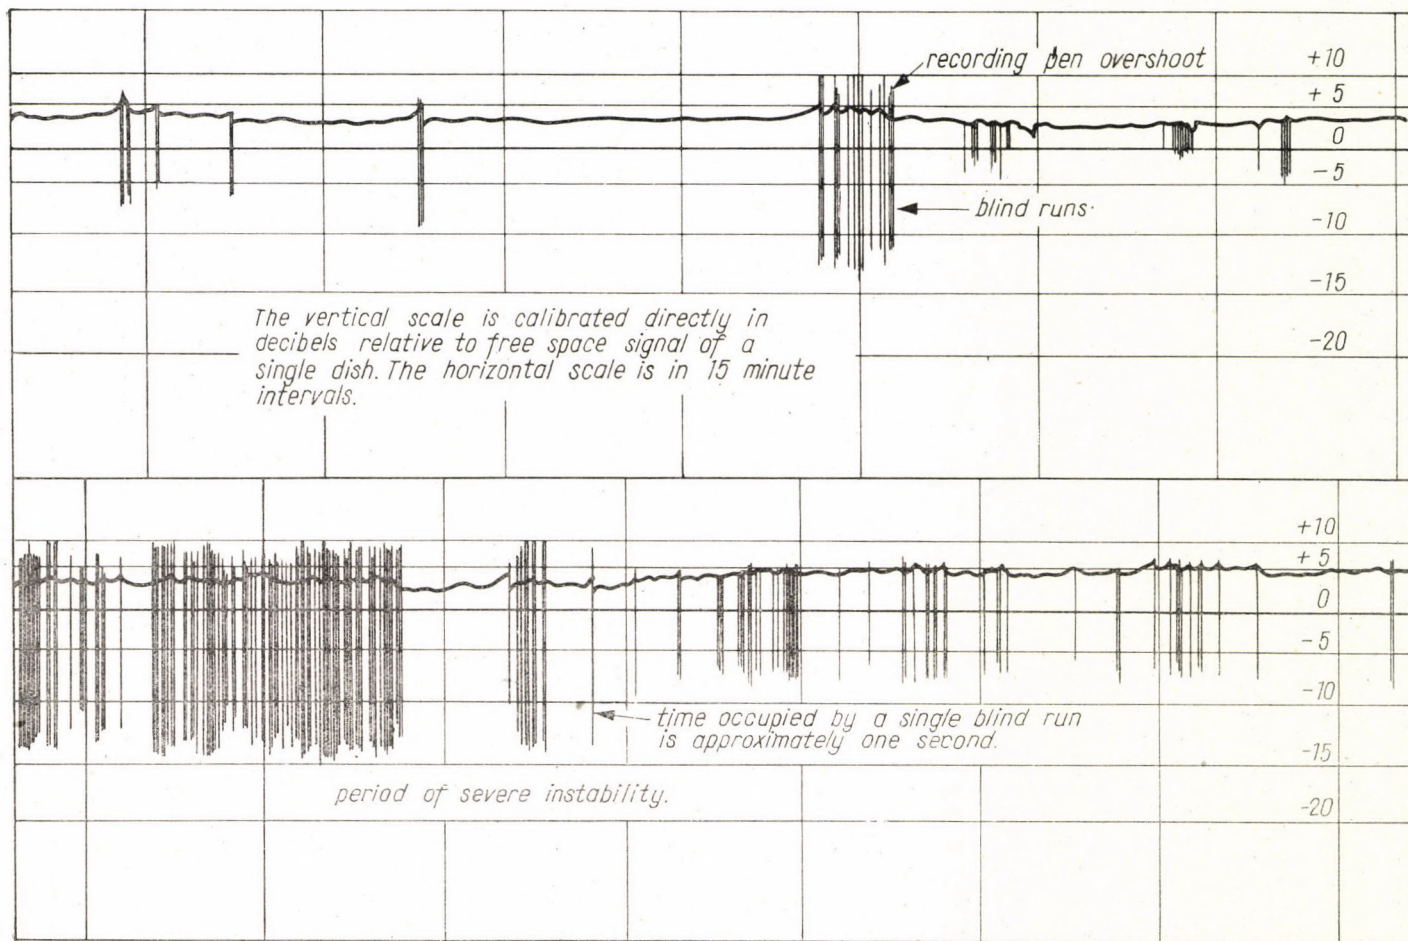 recording pen overshoot
+10
+ 5
0
- 5
blind runs.
-10
-15
The vertical scale is calibrated directly in
decibels relative to free space signal of a
single dish. The horizontal scale is in 15 minute
intervals.
-20
+10
+ 5
0
- 5
-10
time occupied by a single blind run
is approximately one second.
-15
period of severe instability.
-20